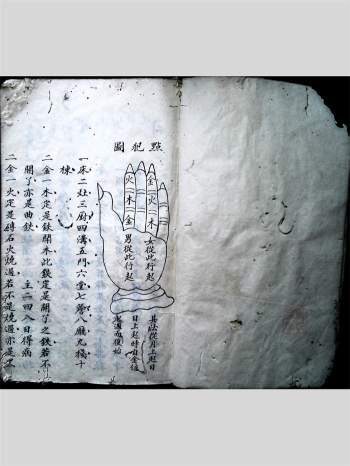 點犯圖
金
火
木
火
木
金
女從此行起
男從此行起
其法從月上起日
日上起時自金位
起週而復始
一床二灶三廚四溝五門六堂七 八廳九 十
棟
二金一木定是鉄關木此鉄定是關了之鉄若不
關了亦是曲鉄 主二四入日得病
二金一火定是磚石火燒過若不是燒過亦是